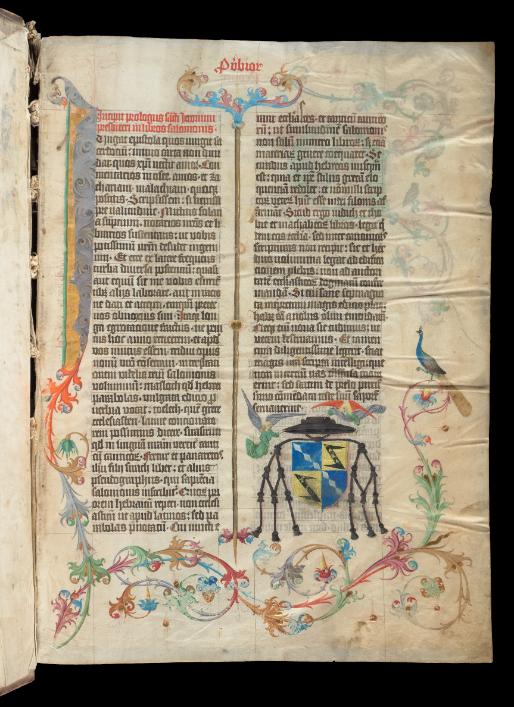 Prouerbiorum
Incipit prologus sancti iheronimi
presbiteri in libros salomonis
Iungat epistola quos iungit sa-
cerdotiū: immo carta non diui-
dat: quos xp̄i nectit amor. Cō-
mentarios in osee · amos · et za-
chariam · malachiam · quoqȝ
poscitis. Scripsissem: si licuisset
pre valitudine. Mittitis solacia
sumptuum · notarios nr̄os et li-
brarios sustentatis: ut vobis
potissimū nr̄m desudet ingeni-
um. Et ecce ex latere frequēs
turba diuersa poscentiū: quasi
aut equū sit me vobis esurien-
tibȝ aliis laborare: aut in racio-
ne dati et accepti · cuiqȝ preter
vos obnoxius sim. Itaqȝ lon-
ga egrotatione fractus · ne peni-
tus hoc anno reticerem · et apud
vos mutus essem · tridui opus
nomini vr̄o cōsecraui · interpreta-
tionem videlicet triū salomonis
voluminū: masloth qd̄ hebrei
parabolas · vulgata editio pro-
uerbia vocat: coeleth · quē grece
ecclesiasten · latine concionato-
rem possumus dicere: sirasirim ·
qd̄ in linguā nr̄am vertit̄ canti-
cū canticoꝝ. Fertur et panaretos ·
ih̄u filii sirach liber: et alius
pseudographus · qui sapientia
salomonis inscribit̄. Quoꝝ pri-
orem hebraicum repperi · nō ecclesi-
asticū ut apud latinos: sed pa-
rabolas prenotatū. Cui iuncti e-
rant ecclesiastes · et canticū cantico-
rū: ut similitudinē salomonis ·
non solū numero libroꝝ: sed etiā
materiaꝝ genere coequaret. Se-
cundus apud hebreos nusqȝ
est: quia et ipse stilus grecā elo-
quentiā redolet: et nōnulli scrip-
toꝝ veteꝝ hunc esse iudei filonis af-
firmāt. Sicut ergo iudith et tho-
bie et machabeoꝝ libros · legit q̄-
dem eos ecclesia · sed inter canonicas
scripturas non recipit: sic et hec
duo volumina legat ad edifica-
tionem plebis: non ad auctori-
tatē ecclesiasticoꝝ dogmatū confir-
mandā. Si cui sane septuagin-
ta interpretum magis editio placet:
habet eā a nobis olim emēdatā.
Neqȝ enī noua sic cudimus: ut
vetera destruamus. Et tamen
cum diligētissime legerit · sciat
magis nr̄a scripta intelligi: que
non in terciū vas transfusa coa-
cuerint: sed statim de prelo puris-
sime cōmēdata teste suū saporē
seruauerint.